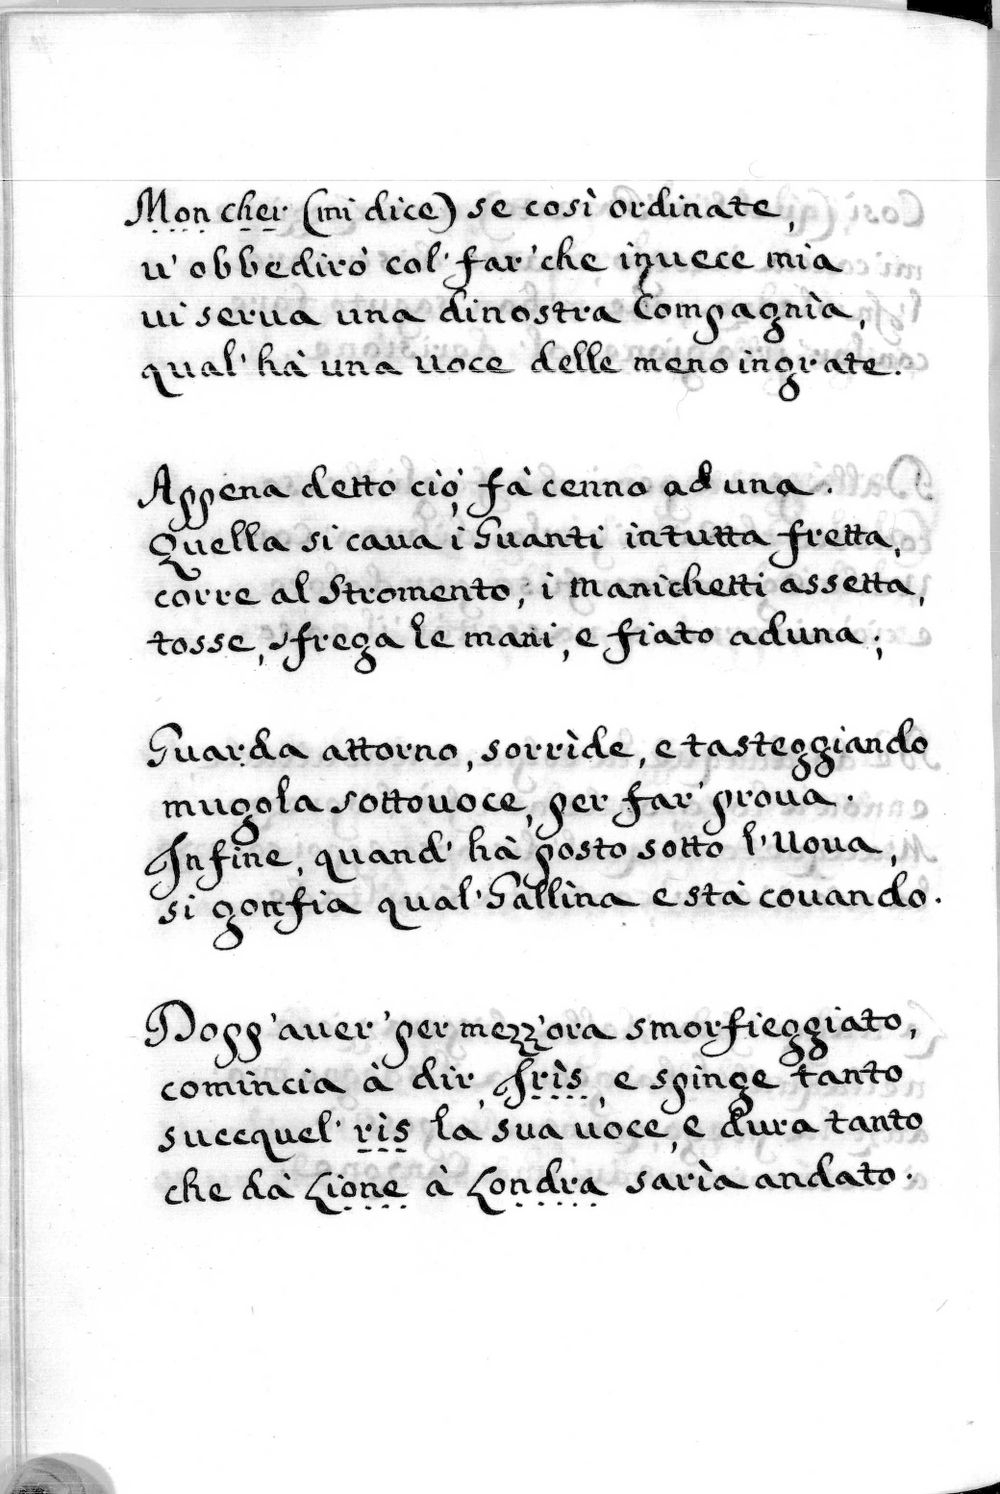 Mon cher (mi dice) se così ordinate,
u' obbedirò col' far' che inuece mia
ui serua una dinostra Compagnìa,
qual' hà una uoce delle meno ingrate.
Appena detto ciò, fà cenno ad una.
Quella si caua i Guanti intutta fretta,
corre al Stromento, i Manichetti assetta,
tosse, sfrega le mani, e fiato aduna;
Guarda attorno, sorrìde, e tasteggiando
mugola sottouoce, per far' proua.
Infine, quand' hà posto sotto l'Uoua,
si gonfia qual' Gallìna e stà couando.
Dopp' auer' per mezz'ora smorfieggiato,
comincia à dir, Irìs, e spinge tanto
succquel' rìs la sua uoce, e dura tanto
che dà Lione à Londra sarìa andato.